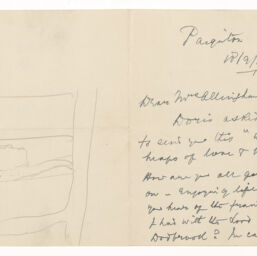 Paignton
18/9/
Dear Mrs Allingham
Doris asked
to send you this "
heaps of love &
How are you all
on - Enjoying life
you hear of the
I has with the Lord
Dodbrood? In ca